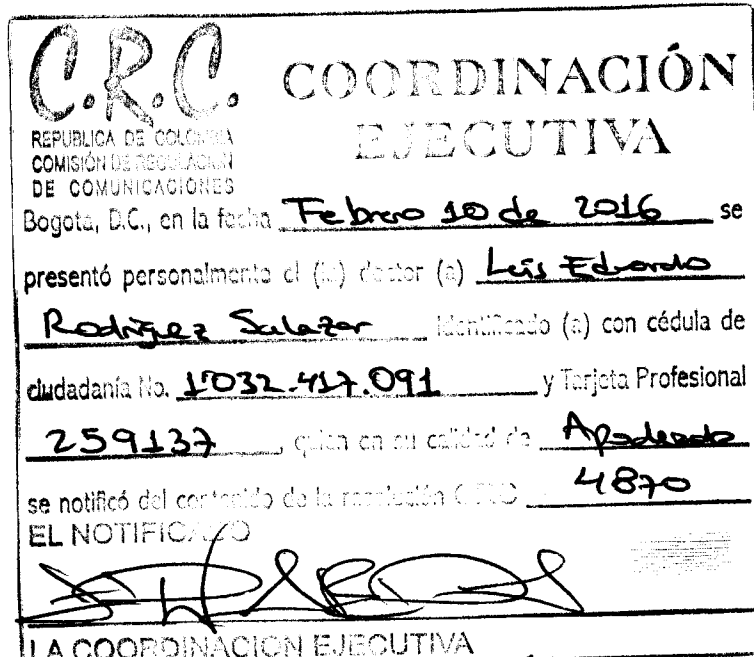 C.R.C. COORDINACIÓN
EJECUTIVA
REPUBLICA DE COLOMBIA
COMISIÓN DE REGULACION
DE COMUNICACIONES
Bogota, D.C., en la fecha Febrero 10 de 2016 se
presentó personalmente el (la) doctor (a) Luis Eduardo
Rodriguez Salazar identificado (a) con cédula de
ciudadanía No. 1'032.417.091 y Tarjeta Profesional
259137, quien en su calidad de Apoderado
se notificó del contenido de la resolución 4870
EL NOTIFICADO
LA COORDINACION EJECUTIVA